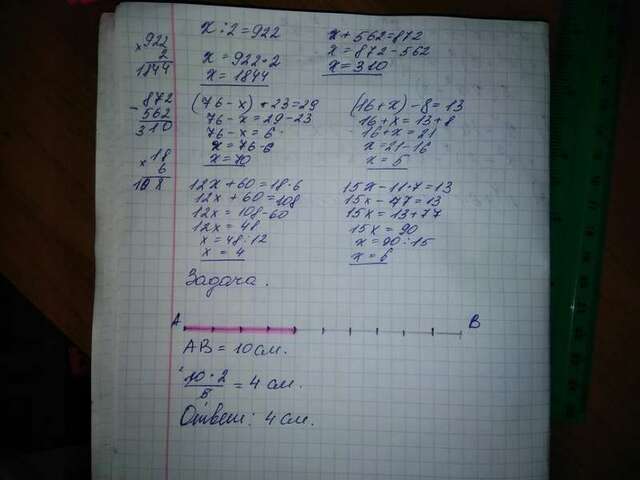 × 922
2
1844
- 872
562
310
× 18
6
108
x : 2 = 922
x = 922 · 2
x = 1844
x + 562 = 872
x = 872 - 562
x = 310
(76 - x) + 23 = 29
76 - x = 29 - 23
76 - x = 6
x = 76 - 6
x = 70
(16 + x) - 8 = 13
16 + x = 13 + 8
16 + x = 21
x = 21 - 16
x = 5
12x + 60 = 18 · 6
12x + 60 = 108
12x = 108 - 60
12x = 48
x = 48 : 12
x = 4
15x - 11 · 7 = 13
15x - 77 = 13
15x = 13 + 77
15x = 90
x = 90 : 15
x = 6
Задача.
A B
AB = 10 см.
10 · 2
5
= 4 см.
Ответ: 4 см.